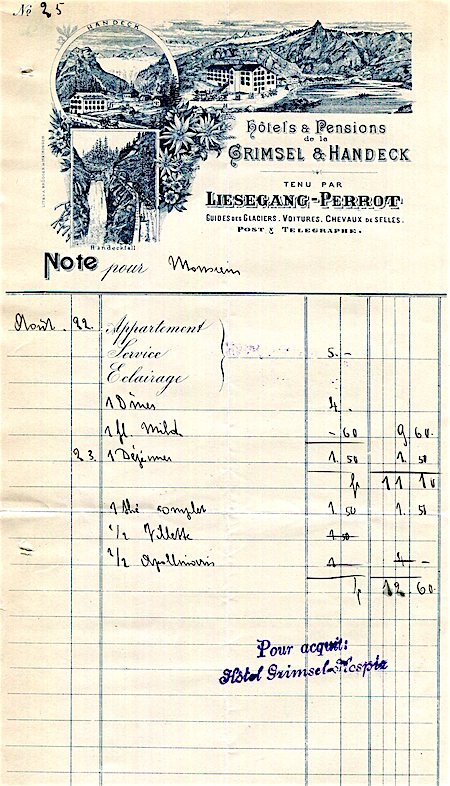 No 25
HANDECK
Hôtels & Pensions
de la
GRIMSEL & HANDECK
TENU PAR
LIESEGANG-PERROT.
GUIDES DES GLACIERS. VOITURES. CHEVAUX DE SELLES.
POST & TELEGRAPHE.
Handeckfall
Note pour Monsieur
Août. 22. Appartement
Service 5. -
Eclairage
1 Dîner 4 -
1 fl. Milch - 60 9 60.
23. 1 Déjeuner 1. 50 1. 50
fr 11 10
1 thé complet 1 50 1. 50
1/2 Villette 1 50
1/2 Apollinaris 1 - 1 -
fr 12 60.
Pour acquit:
Hôtel Grimsel-Hospiz